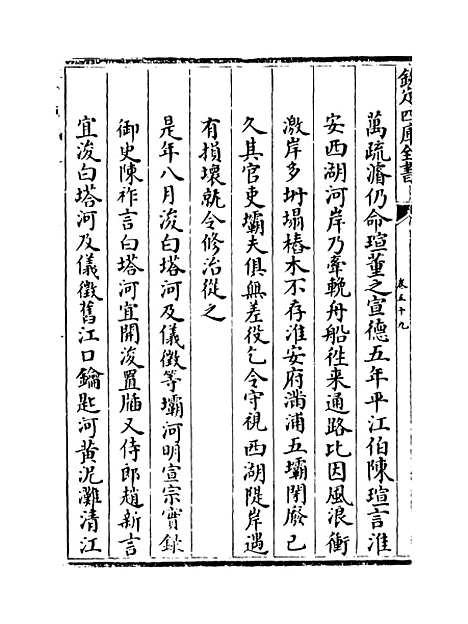 欽定四庫全書
卷五十九
萬疏濬仍命瑄董之宣德五年平江伯陳瑄言淮
安西湖河岸乃牽輓舟船徃来通路比因風浪衝
激岸多坍塌樁木不存淮安府滿浦五壩閉廢已
久其官吏壩夫俱無差役乞令守視西湖隄岸遇
有損壞就令修治從之
是年八月浚白塔河及儀徵等壩河明宣宗實録
御史陳祚言白塔河宜開浚置牐又侍郎趙新言
宜浚白塔河及儀徵舊江口鑰匙河黄泥灘清江